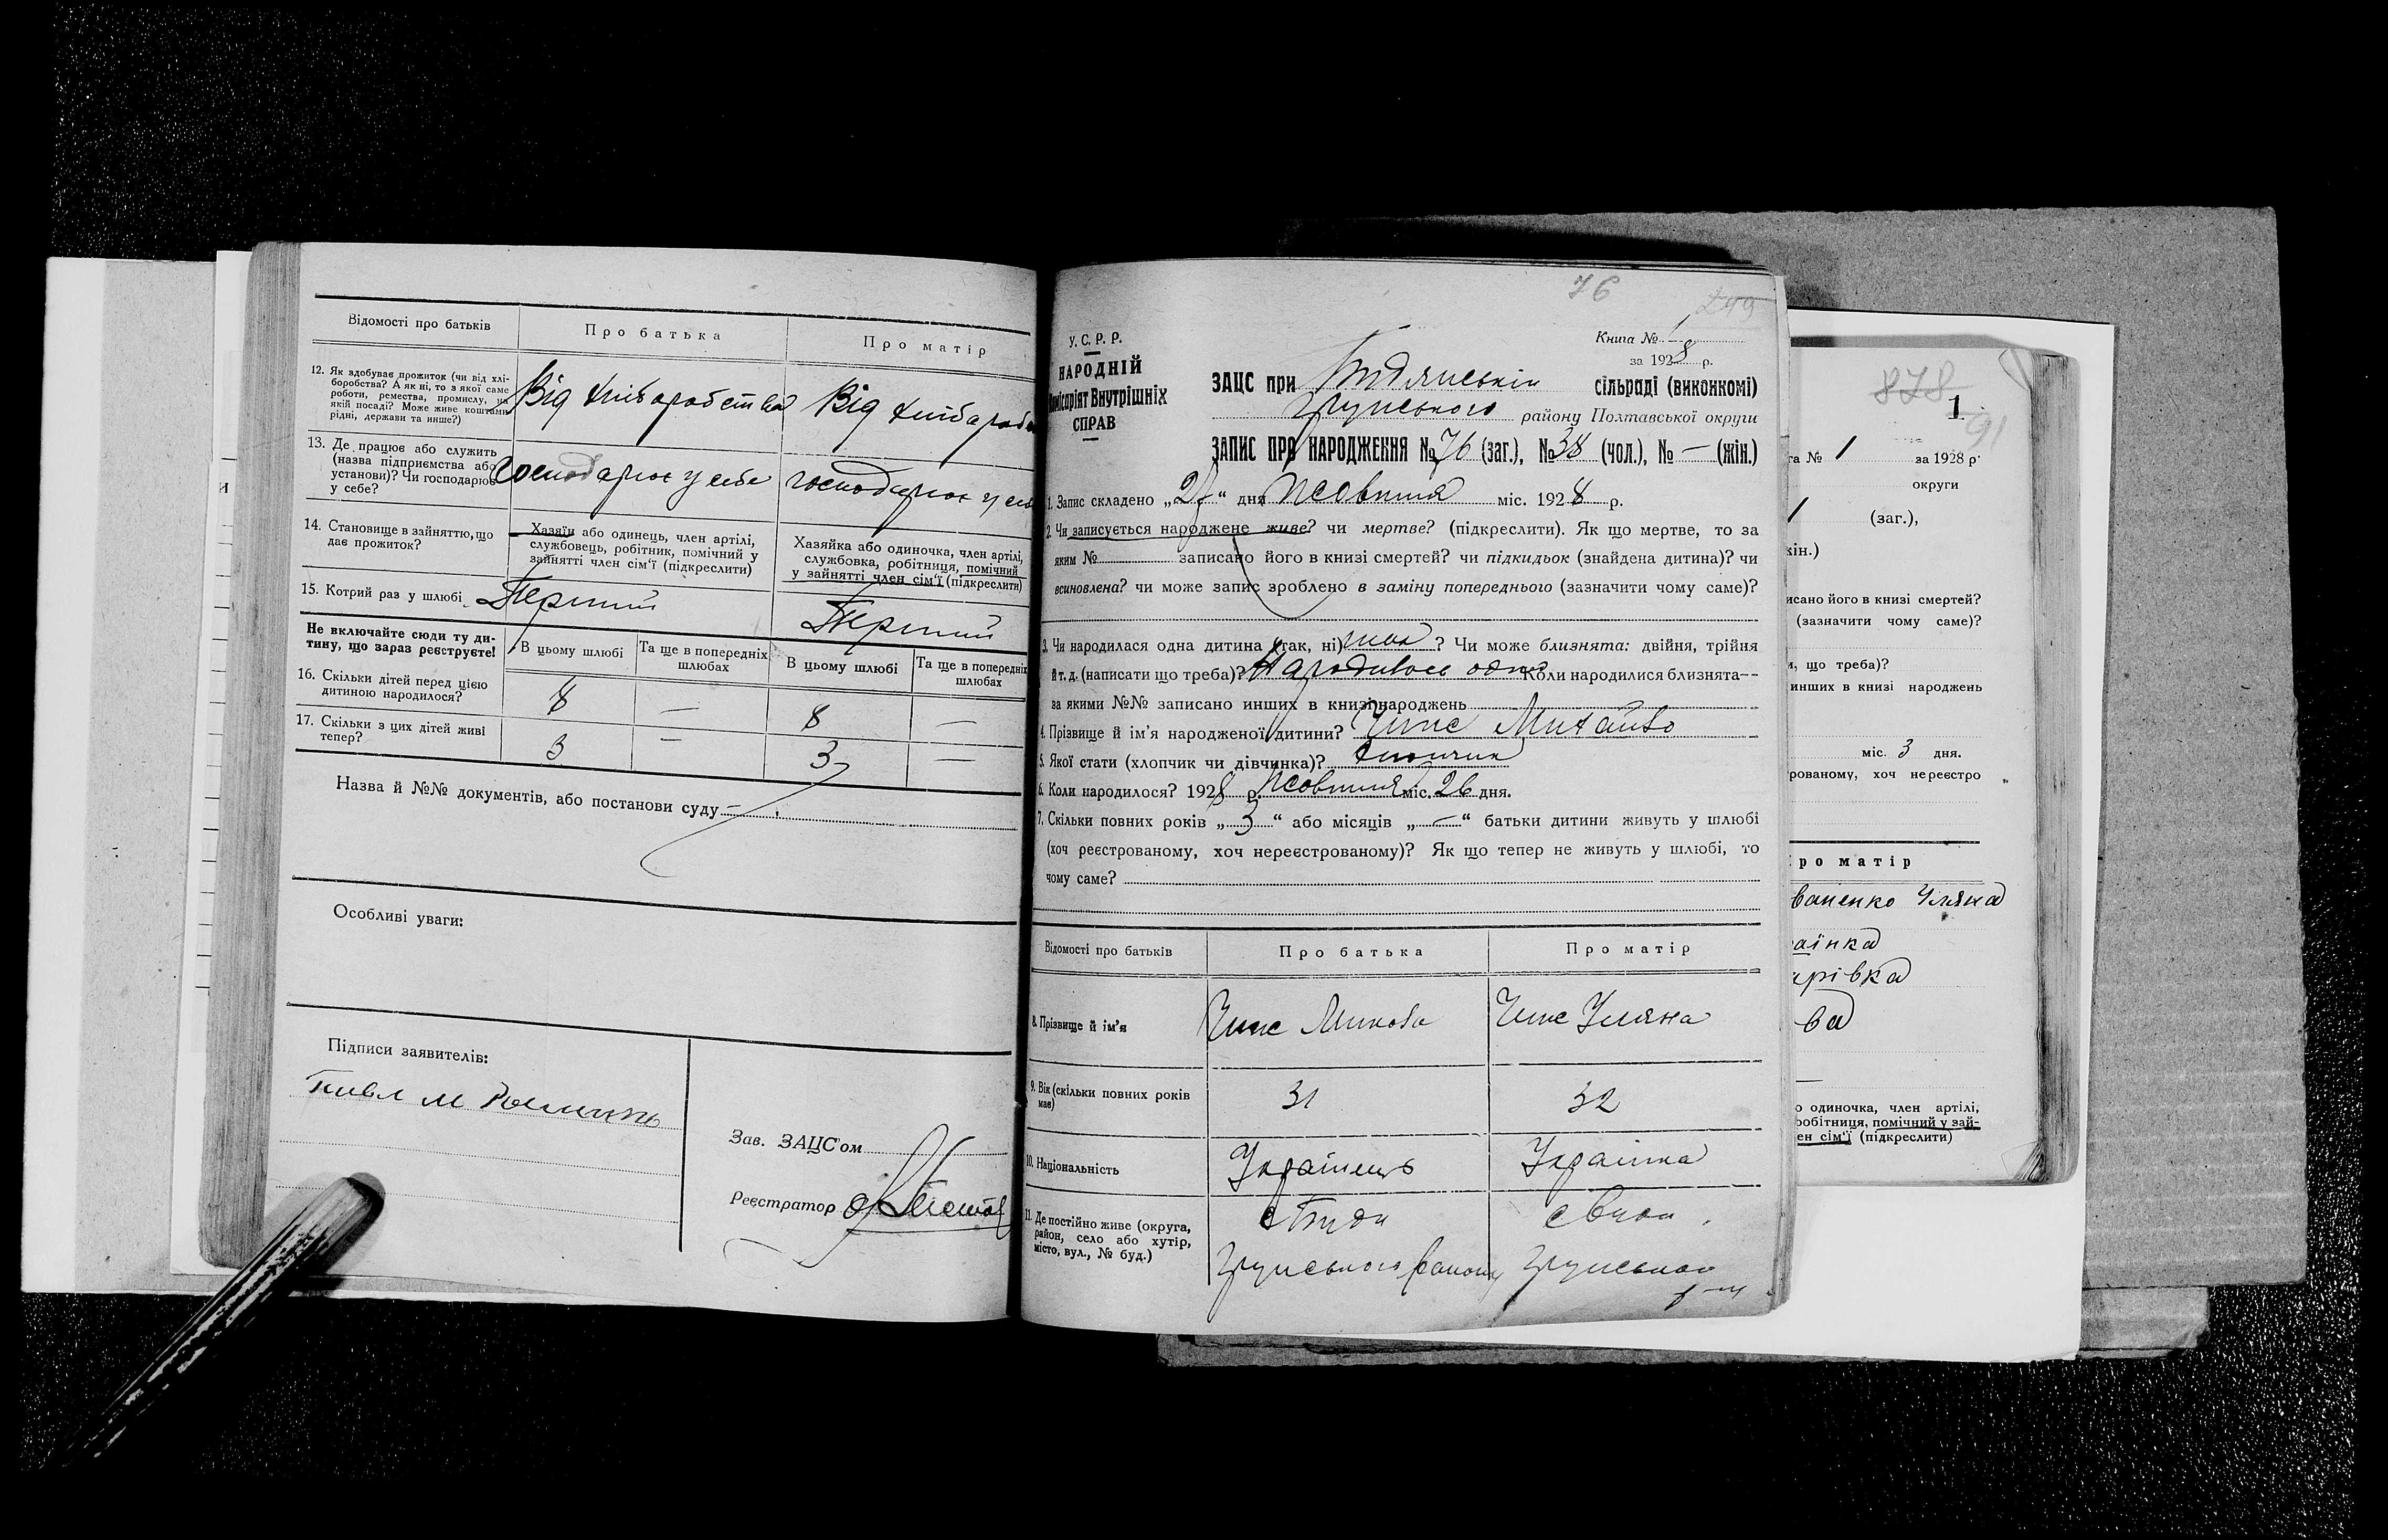 Відомості про батьків
Про батька
Про матір
12. Як здобуває прожиток (чи від хлі-
боробства? А як ні, то з якої саме
роботи, ремества, промислу, на
якій посаді? Може живе коштами
рідні, держави та инше?)
Від хліборобства
Від хлібороб
13. Де працює або служить
(назва підприємства або
установи)? Чи господарює
у себе?
Господарює у себе
господарює у себ
14. Становище в зайняттю, що
дає прожиток?
Хазяїн або одинець, член артілі,
службовець, робітник, помічний у
зайнятті член сім'ї (підкреслити)
Хазяйка або одиночка, член артілі,
службовка, робітниця, помічний
у зайнятті член сім'ї (підкреслити)
15. Котрий раз у шлюбі
Перший
Перший
Не включайте сюди ту ди-
тину, що зараз реєструєте!
В цьому шлюбі
Та ще в попередніх
шлюбах
В цьому шлюбі
Та ще в попередніх
шлюбах
16. Скільки дітей перед цією
дитиною народилося?
8 — 8 —
17. Скільки з цих дітей живі
тепер?
3 — 3 —
Назва й №№ документів, або постанови суду —
Особливі уваги:
Підписи заявителів:
Зав. ЗАЦС'ом
Реєстратор
76
299
У. С. Р. Р.
НАРОДНІЙ
Комісаріят Внутрішніх
СПРАВ
Книга № 1
за 1928 р.
ЗАЦС при сільраді (виконкомі)
Грунського району Полтавської округи
ЗАПИС ПРО НАРОДЖЕННЯ № 76 (заг.), № 38 (чол.), № — (жін.)
1. Запис складено „27“ дня жовтня міс. 1928 р.
2. Чи записується народжене живе? чи мертве? (підкреслити). Як що мертве, то за
яким № записано його в книзі смертей? чи підкидьок (знайдена дитина)? чи
всиновлена? чи може запис зроблено в заміну попереднього (зазначити чому саме)?
3. Чи народилася одна дитина (так, ні) ? Чи може близнята: двійня, трійня
й т. д. (написати що треба)? Народилось одно Коли народилися близнята—
за якими №№ записано инших в книзі народжень
4. Прізвище й ім'я народженої дитини? Чипс Михайло
5. Якої стати (хлопчик чи дівчинка)? хлопчик
6. Коли народилося? 1928 р. жовтня міс. 26 дня.
7. Скільки повних років „3“ або місяців „—“ батьки дитини живуть у шлюбі
(хоч реєстрованому, хоч нереєстрованому)? Як що тепер не живуть у шлюбі, то
чому саме?
Відомості про батьків
Про батька
Про матір
8. Прізвище й ім'я
Чипс Микола
Чипс Уляна
9. Вік (скільки повних років
має)
31
32
10. Національність
Українець
Українка
11. Де постійно живе (округа,
район, село або хутір,
місто, вул., № буд.)
Грунського району
Грунського
р-ну
878
1.
91
га № 1 за 1928 р.
округи
1 (заг.),
жін.)
исано його в книзі смертей?
(зазначити чому саме)?
и, що треба)?
инших в книзі народжень
міс. 3 дня.
рованому, хоч нереєстро
Про матір
ваненко Уляна
аїнка
арівка
ва
—
о одиночка, член артілі,
робітниця, помічний у зай-
ен сім'ї (підкреслити)